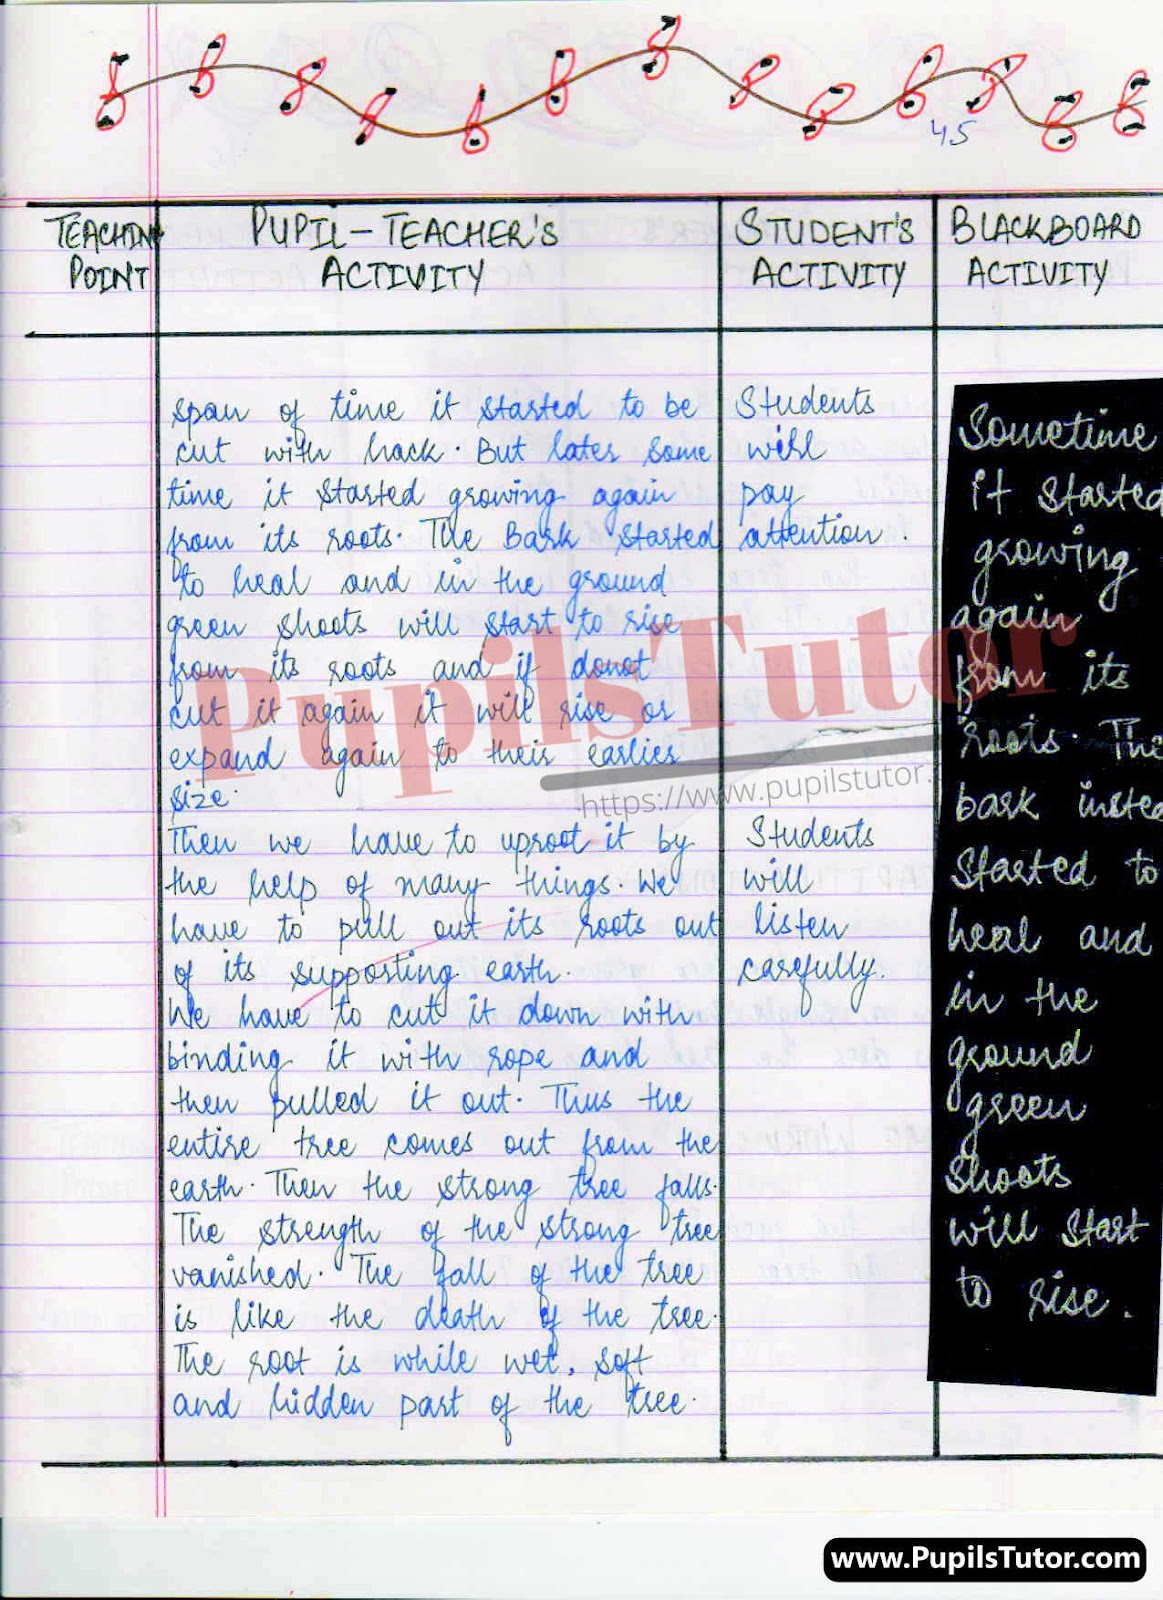 45
TEACHING
POINT
PUPIL-TEACHER'S
ACTIVITY
STUDENT'S
ACTIVITY
BLACKBOARD
ACTIVITY
span of time it started to be
cut with hack. But later some
time it started growing again
from its roots. The Bark started
to heal and in the ground
green shoots will start to rise
from its roots and if donot
cut it again it will rise or
expand again to their earlies
size.
Then we have to uproot it by
the help of many things. We
have to pull out its roots out
of its supporting earth.
We have to cut it down with
binding it with rope and
then pulled it out. Thus the
entire tree comes out from the
earth. Then the strong tree falls.
The strength of the strong tree
vanished. The fall of the tree
is like the death of the tree.
The root is while wet, soft
and hidden part of the tree.
Students
will
pay
attention.
Students
will
listen
carefully.
Sometime
it started
growing
again
from its
roots. The
bark insted
started to
heal and
in the
ground
green
shoots
will start
to rise.
PupilsTutor
https://www.pupilstutor.
www.PupilsTutor.com